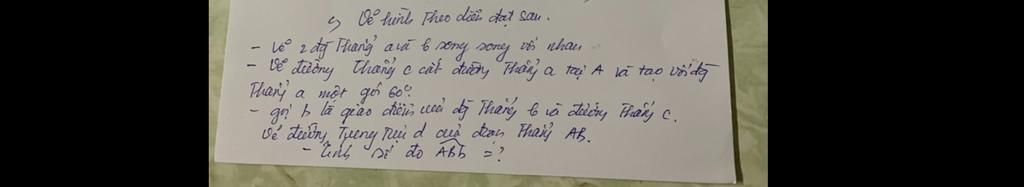 5, Vẽ hình theo diễn đạt sau.
- Vẽ 2 đg thẳng a và b song song với nhau
- Vẽ đường thẳng c cắt đường thẳng a tại A và tạo với đg
thẳng a một góc 60°.
- gọi b là giao điểm của đg thẳng b và đường thẳng c.
Vẽ đường trung trực d của đoạn thẳng AB.
- tính số đo ABb = ?